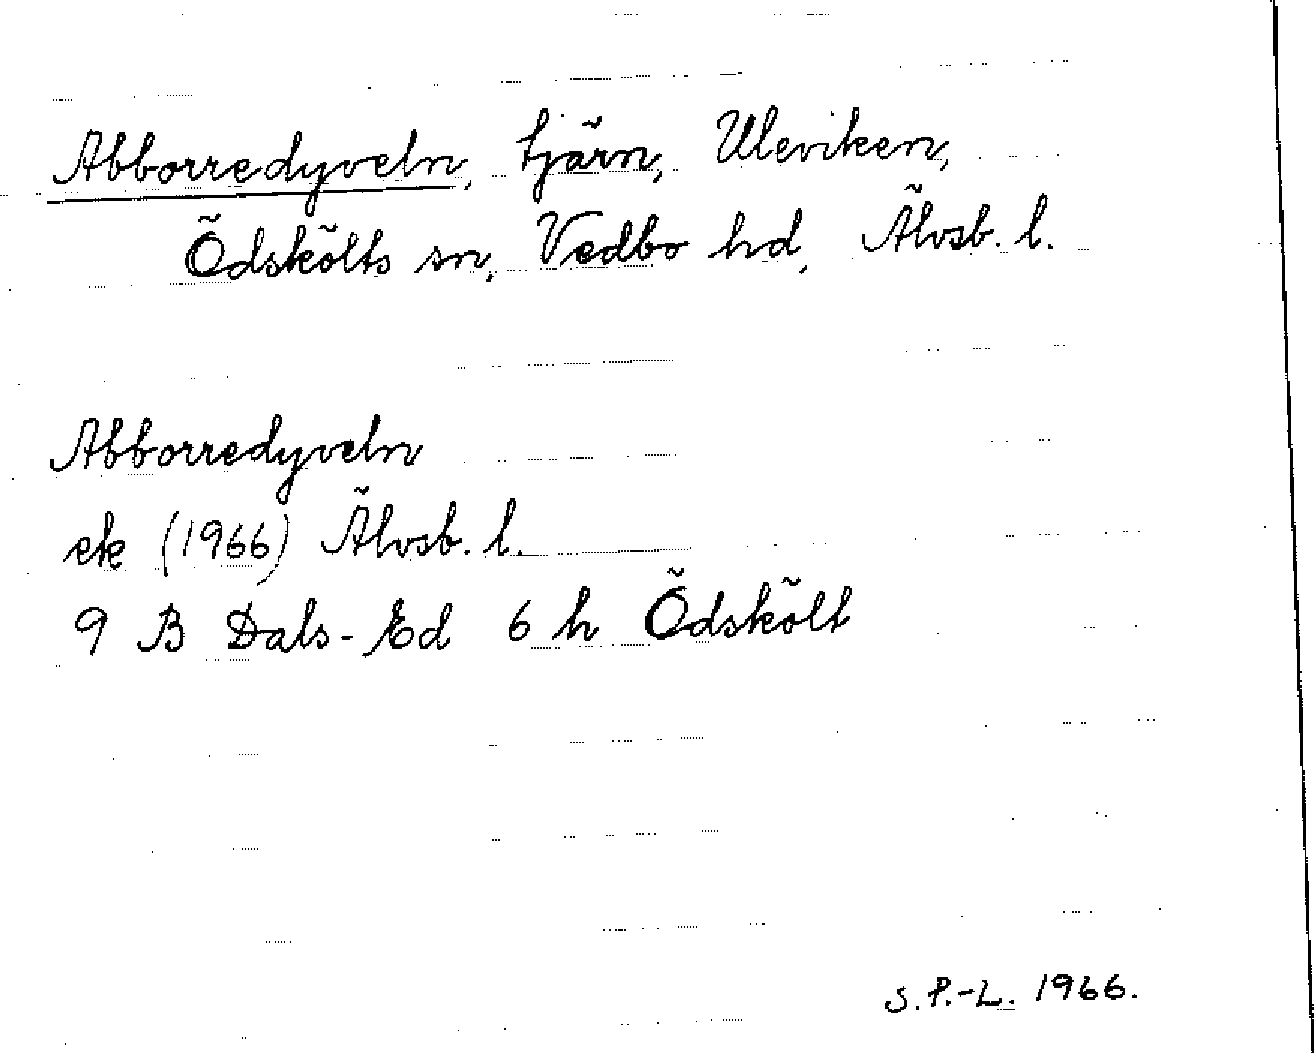 Abborredyveln, tjärn, Uleviken,
Ödskölts sn, Vedbo hd, Älvsb. l.
Abborredyveln
ek (1966) Älvsb. l.
9 B Dals-Ed 6 h Ödskölt
S.P.-L. 1966.